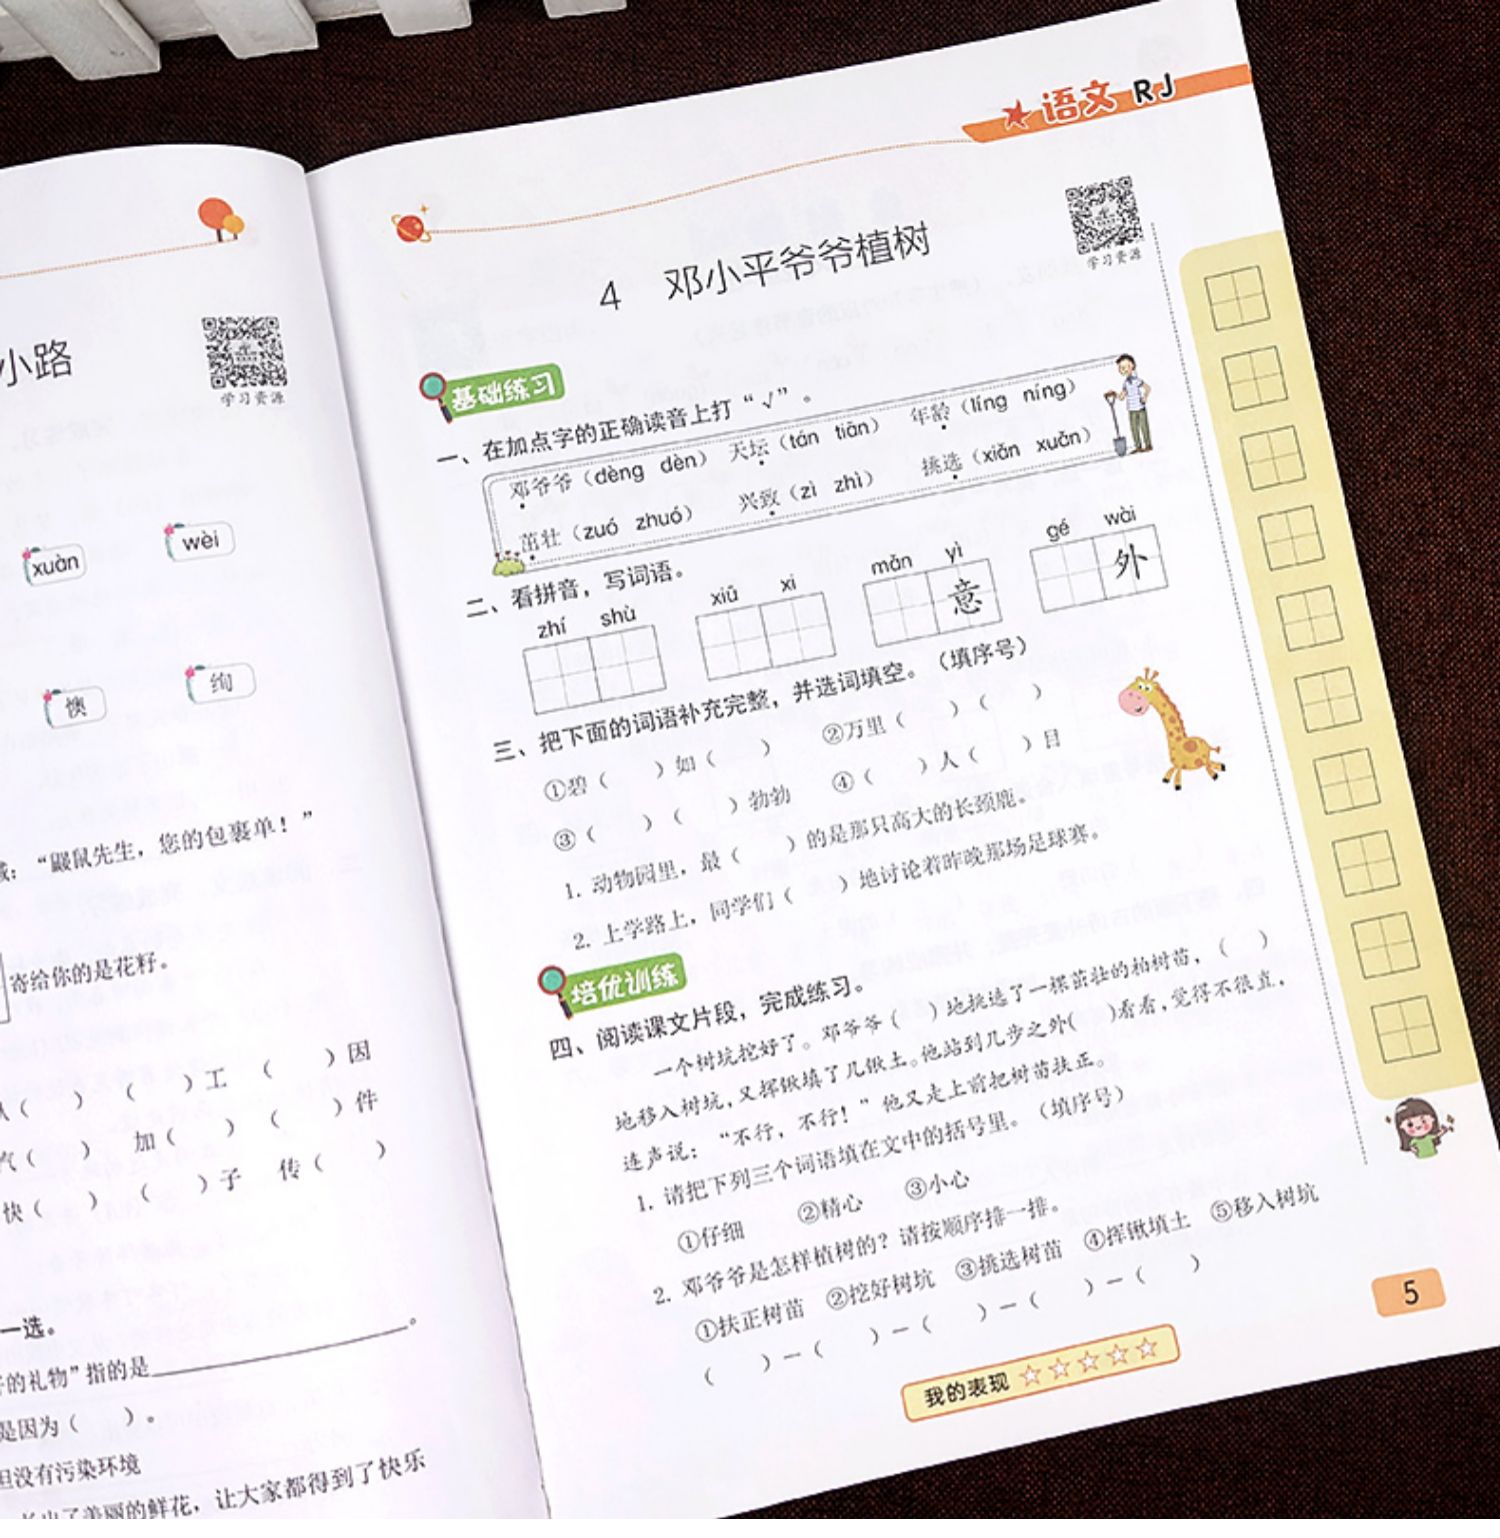 小路
学习资源
xuàn
wèi
懊
绚
“鼹鼠先生，您的包裹单！”
寄给你的是花籽。
（　）（　）工（　）因
（　）加（　）（　）件
快（　）（　）子 传（　）
一选。
的礼物”指的是　　　。
是因为（　）。
但没有污染环境
长出了美丽的鲜花，让大家都得到了快乐
语文 RJ
学习资源
4 邓小平爷爷植树
基础练习
一、在加点字的正确读音上打“√”。
邓爷爷（dèng dèn） 天坛（tán tiān） 年龄（líng níng）
茁壮（zuó zhuó） 兴致（zì zhì） 挑选（xiǎn xuǎn）
二、看拼音，写词语。
zhí shù xiū xi mǎn yì gé wài
意 外
三、把下面的词语补充完整，并选词填空。（填序号）
①碧（　）如（　） ②万里（　）（　）
③（　）（　）勃勃 ④（　）人（　）目
1. 动物园里，最（　）的是那只高大的长颈鹿。
2. 上学路上，同学们（　）地讨论着昨晚那场足球赛。
培优训练
四、阅读课文片段，完成练习。
一个树坑挖好了。邓爷爷（　）地挑选了一棵茁壮的柏树苗，（　）
地移入树坑，又挥锹填了几锹土。他站到几步之外（　）看看，觉得不很直，
连声说：“不行，不行！”他又走上前把树苗扶正。
1. 请把下列三个词语填在文中的括号里。（填序号）
①仔细 ②精心 ③小心
2. 邓爷爷是怎样植树的？请按顺序排一排。
①扶正树苗 ②挖好树坑 ③挑选树苗 ④挥锹填土 ⑤移入树坑
（　）—（　）—（　）—（　）—（　）
我的表现
5